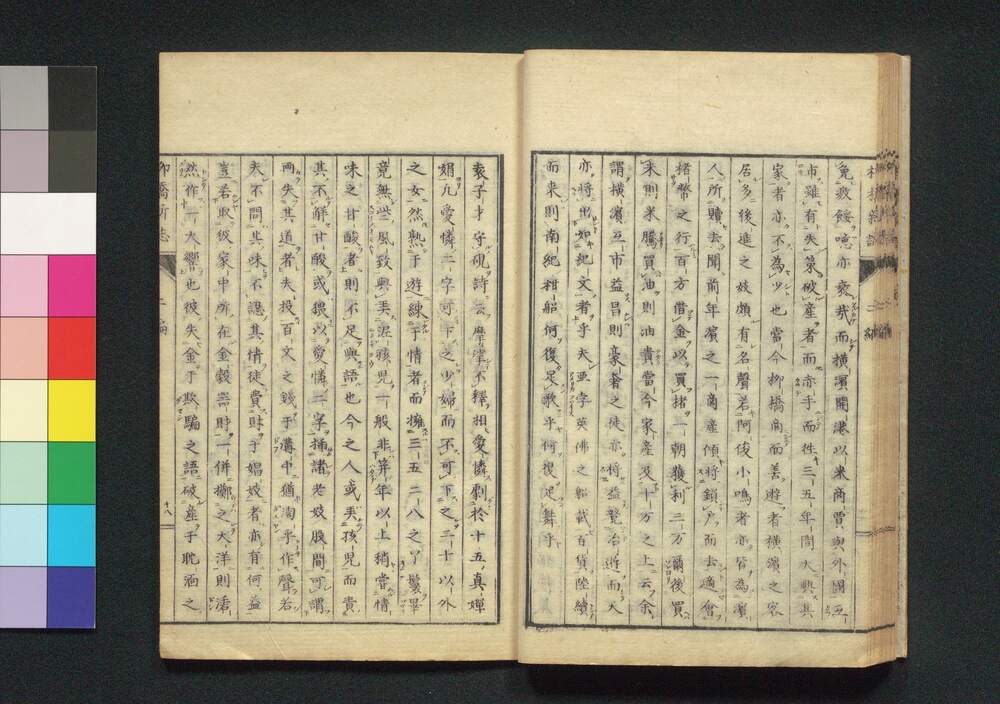 免救餒噫亦哀哉而橫濱開港以来商賈與外國互
市雖有失策破產者而赤手而徃三五年間大興其
家者亦不為少也當今柳橋南而善遊者橫濱之客
居多後進之妓頗有名聲若阿俊小鳴者亦皆為濱
人所贖去聞前年濱之一商産傾将鎖戸而去適會
楮幣之行百方借金以買楮一朝獲利三万爾後買
米則米騰買油則油貴當今家産及十万之上云余
謂橫濱互市益昌則豪奢之徒亦将益覽冶遊而大
亦将出如紀文者乎夫亜孛英佛之船載百貨陸續
而来則南紀柑船何復足歌乎何復足舞乎
袁子才守硯詩云摩挲不釋相愛憐劇於十五真嬋
娟凢愛憐二字可下之少婦而不可下之二十以外
之女然熟于遊練于情者而擁三五二八之丫鬟畢
竟無些風致與弄泥孩児一般非笄年以上稍嘗情
味之甘酸者則不足與語也今之人或弄孩児而責
其不解甘酸或猥以愛憐二字插諸老妓股間可謂
両失其道者夫投百文之錢于溝中猶洶乎作聲若
夫不問其味不認其情徒費財于娼妓者亦有何益
豈若取彼家中所在金穀器財一併擲之大洋則濤
然作一大響也彼失金于欺騙之語破産于耽酒之
柳橋新誌 二編
十八